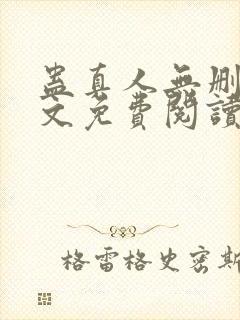 蛊真人無删
文免費閱讀
格雷格史密斯